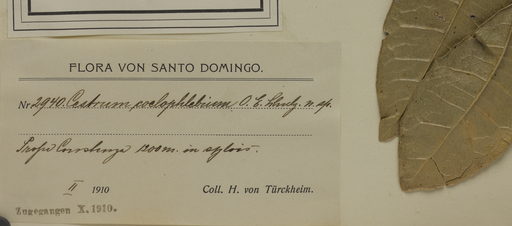 FLORA VON SANTO DOMINGO.
Nr. 2940. Cestrum coelophlebium O. E. Schulz. n. sp.
Prope Constanza 1200 m. in sylvis.
II 1910 Coll. H. von Türckheim.
Zugegangen X. 1910.